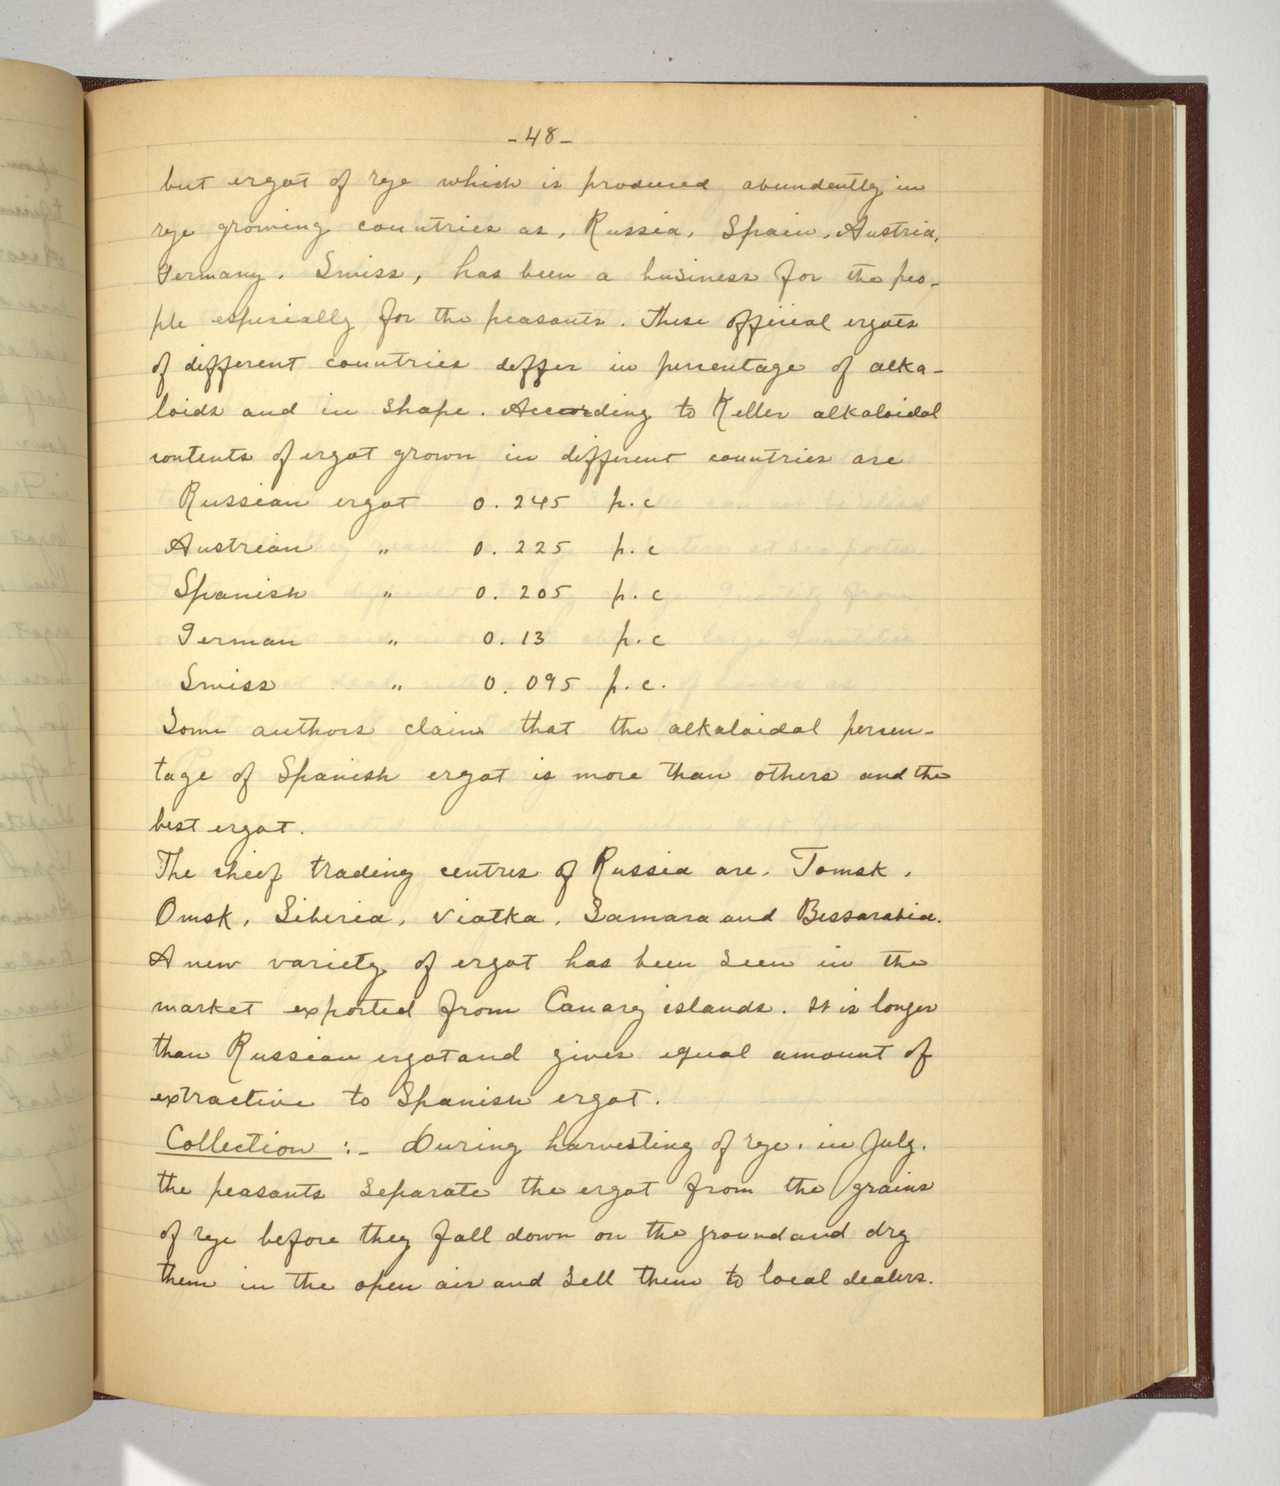 -48-
but ergot of rye which is produced abundently in
rye growing countries as, Russia, Spain, Austria,
Germany, Swiss, has been a business for the peo-
ple especially for the peasants. These official ergots
of different countries deffer in persentage of alka-
loids and in shape. According to Keller alkaloidal
contents of ergot grown in different countries are
Russian ergot 0.245 p.c
Austrian " 0.225 p.c
Spanish " 0.205 p.c
German " 0.13 p.c
Swiss " 0.095 p.c.
Some authors claim that the alkaloidal persen-
tage of Spanish ergot is more than others and the
best ergot.
The cheef trading centres of Russia are, Tomsk,
Omsk, Siberia, Viatka, Samara and Bessarabia.
A new variety of ergot has been seen in the
market exported from Canary islands. It is longer
than Russian ergot and gives equal amount of
extractive to Spanish ergot.
Collection :- During harvesting of rye, in July,
the peasants separate the ergot from the grains
of rye before they fall down on the ground and dry
them in the open air and sell them to local dealers.